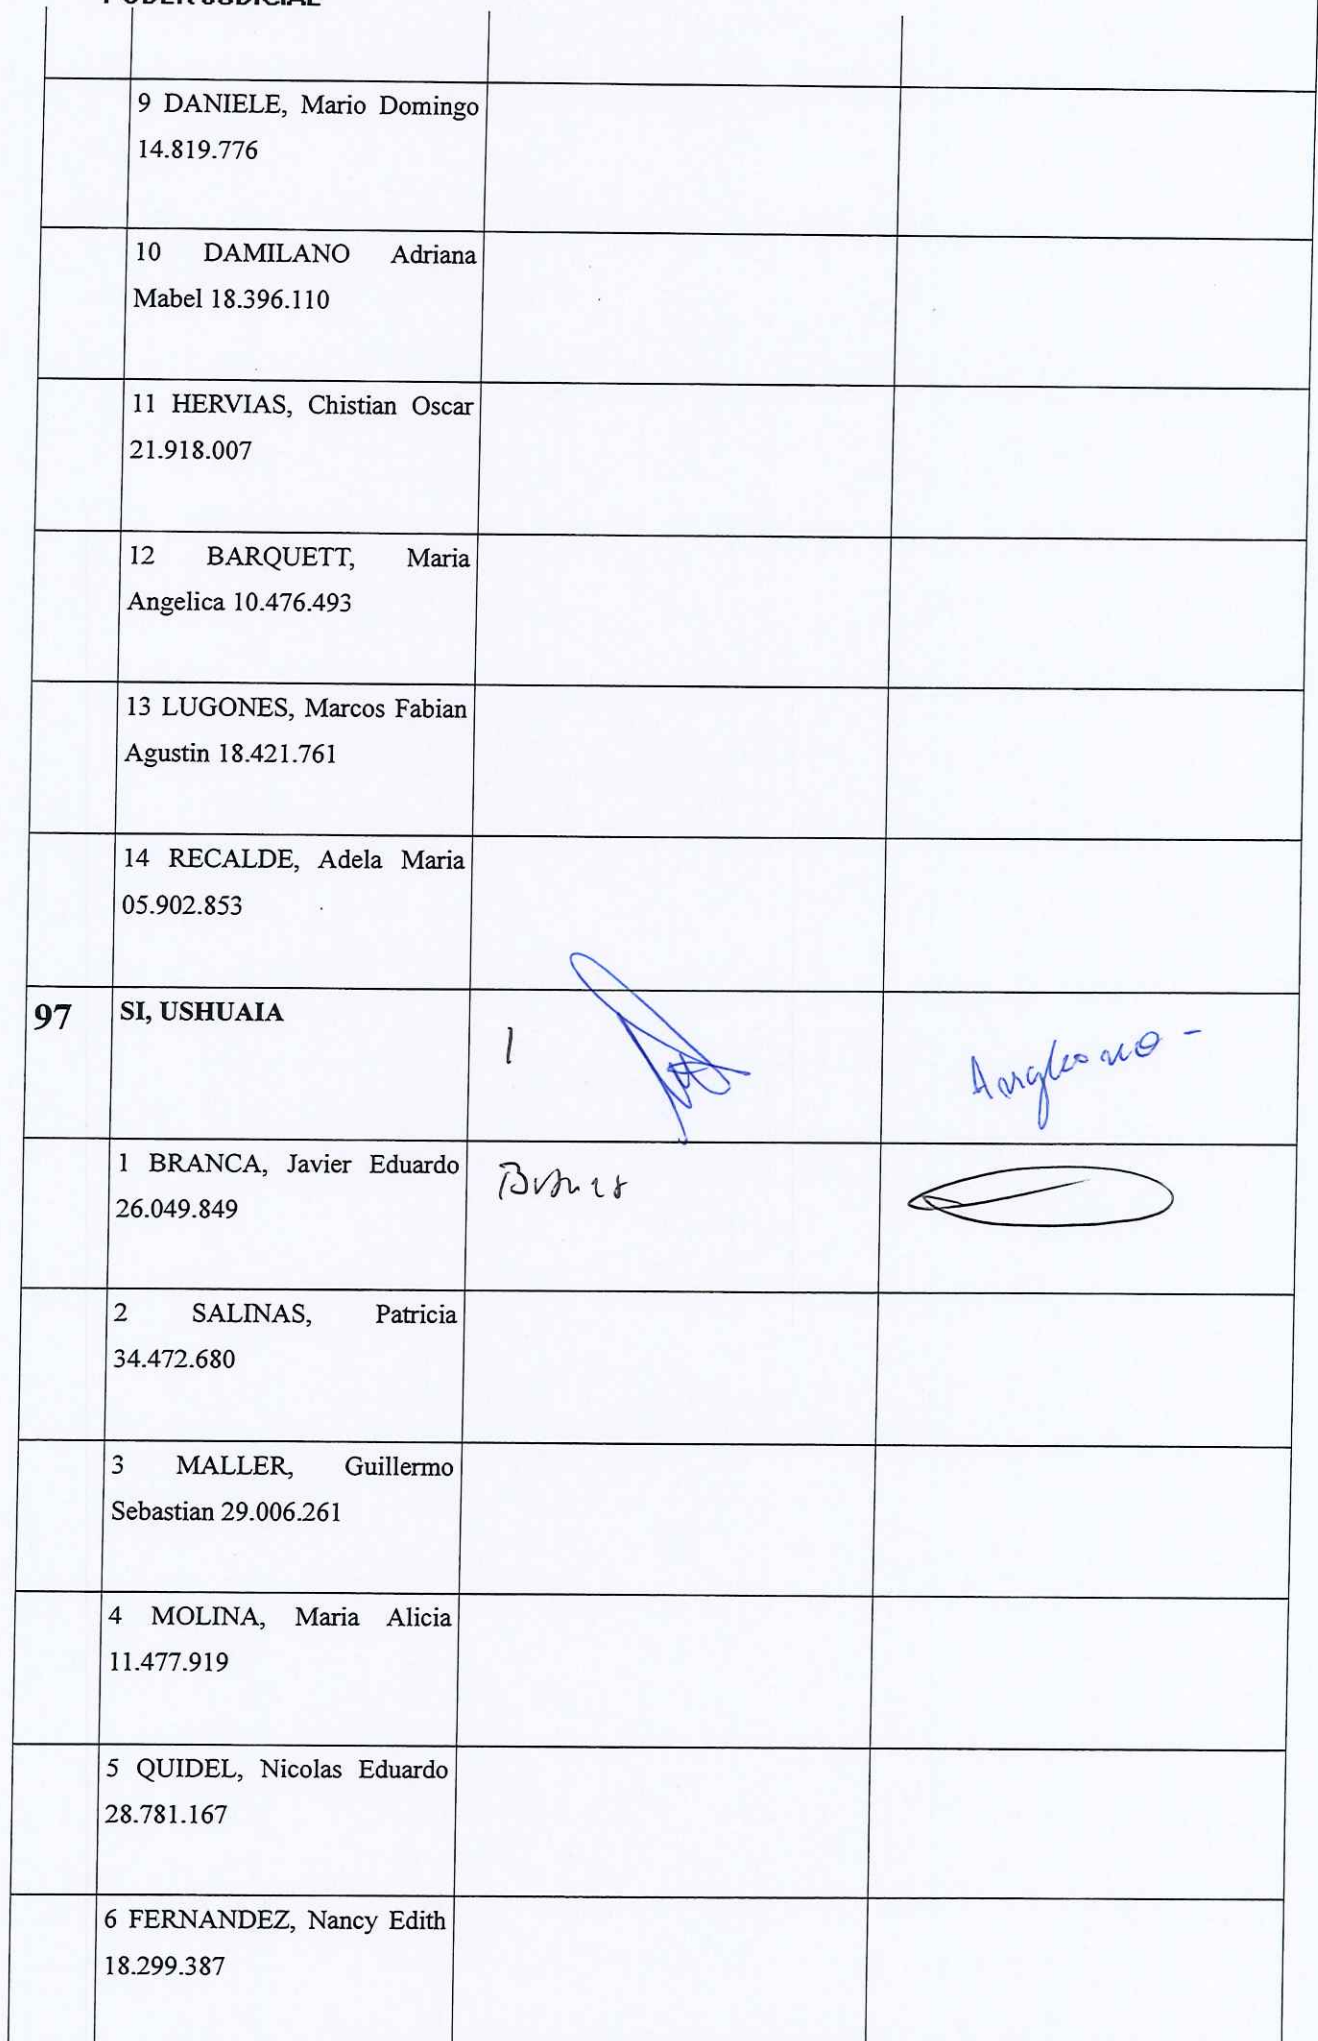 PODER JUDICIAL
9 DANIELE, Mario Domingo
14.819.776
10 DAMILANO Adriana
Mabel 18.396.110
11 HERVIAS, Chistian Oscar
21.918.007
12 BARQUETT, Maria
Angelica 10.476.493
13 LUGONES, Marcos Fabian
Agustin 18.421.761
14 RECALDE, Adela Maria
05.902.853
97 SI, USHUAIA 1
1 BRANCA, Javier Eduardo
26.049.849
2 SALINAS, Patricia
34.472.680
3 MALLER, Guillermo
Sebastian 29.006.261
4 MOLINA, Maria Alicia
11.477.919
5 QUIDEL, Nicolas Eduardo
28.781.167
6 FERNANDEZ, Nancy Edith
18.299.387